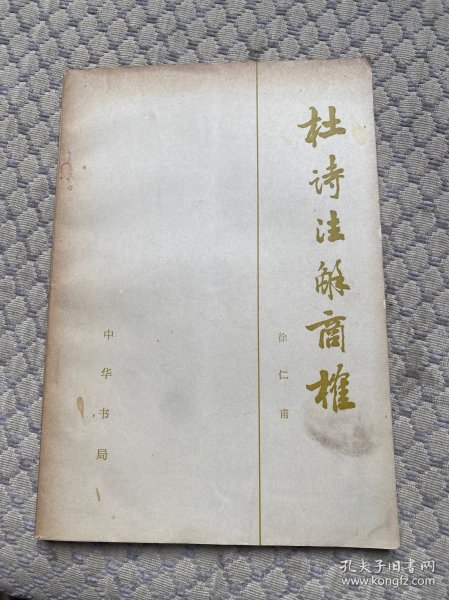 杜诗注解商榷
徐仁甫
中华书局
孔夫子旧书网
www.kongfz.com